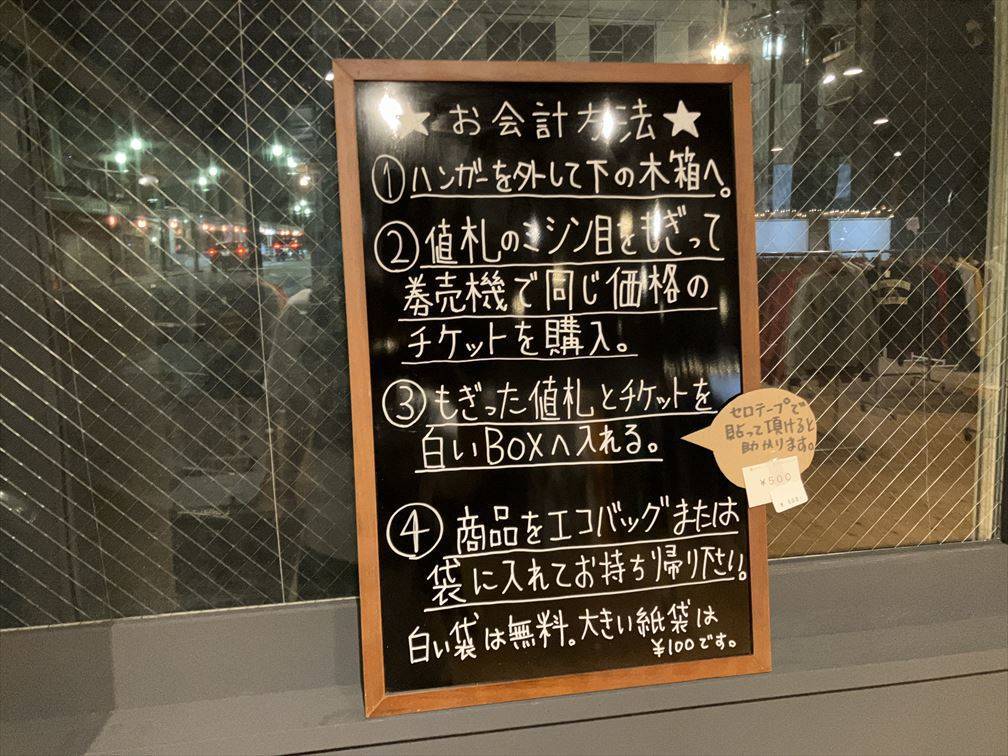 ★お会計方法★
①ハンガーを外して下の木箱へ。
②値札のミシン目をもぎって
券売機で同じ価格の
チケットを購入。
③もぎった値札とチケットを
白いBOXへ入れる。
セロテープで
貼って頂けると
助かります。
¥500
④商品をエコバッグまたは
袋に入れてお持ち帰り下さい。
白い袋は無料。大きい紙袋は
¥100です。